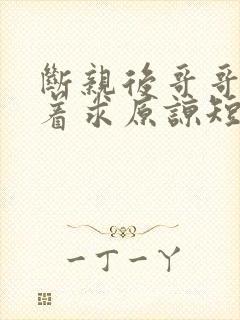 斷親後哥哥
着求原諒短
一丁一丫